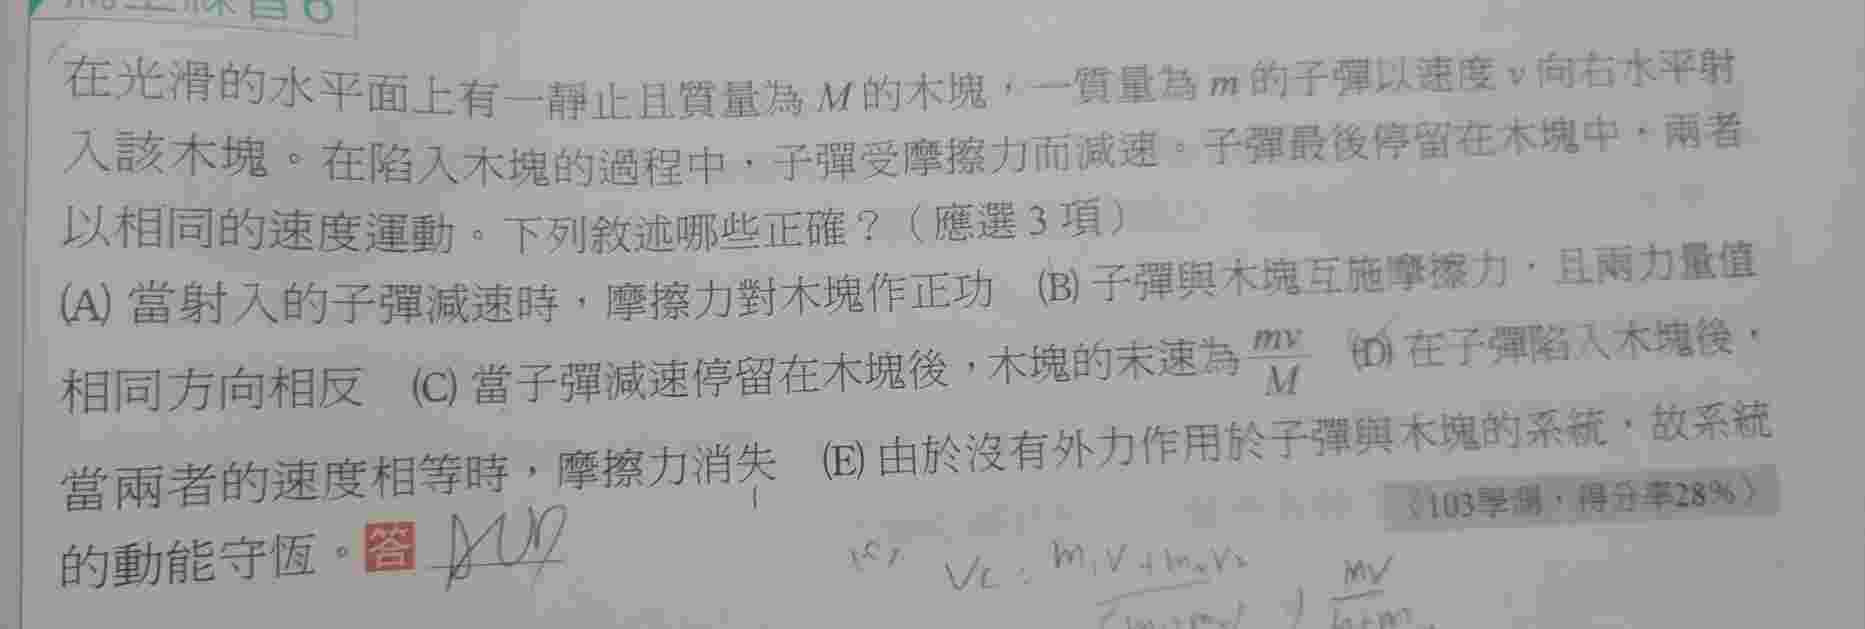 在光滑的水平面上有一靜止且質量為 M 的木塊，一質量為 m 的子彈以速度 v 向右水平射
入該木塊。在陷入木塊的過程中，子彈受摩擦力而減速。子彈最後停留在木塊中，兩者
以相同的速度運動。下列敘述哪些正確？（應選 3 項）
(A) 當射入的子彈減速時，摩擦力對木塊作正功 (B) 子彈與木塊互施摩擦力，且兩力量值
相同方向相反 (C) 當子彈減速停留在木塊後，木塊的末速為 mv/M (D) 在子彈陷入木塊後，
當兩者的速度相等時，摩擦力消失 (E) 由於沒有外力作用於子彈與木塊的系統，故系統
的動能守恆。答
〈103學測，得分率28%〉